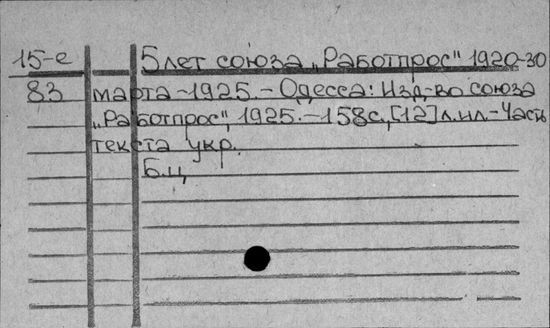 15-е 5 лет союза „Работпрос" 1920-30
83 марта-1925. - Одесса: Изд-во союза
„Работпрос", 1925. - 158с., [12] л.ил. - Часть
текста укр.
Б.ц